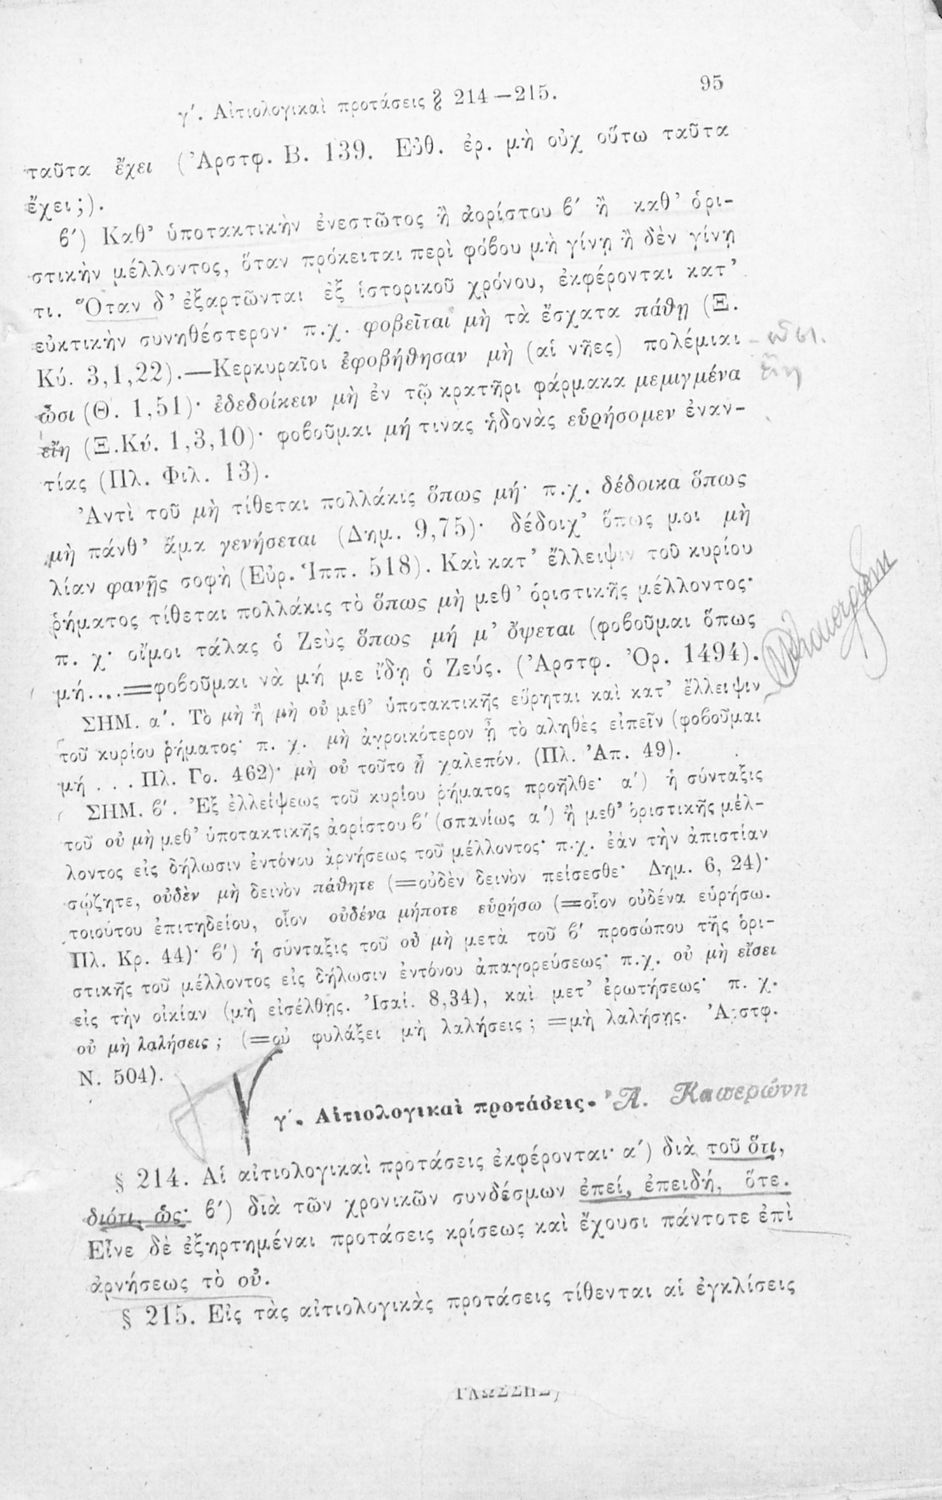 γ΄. Αἰτιολογικαὶ προτάσεις § 214—215. 95
ταῦτα ἔχει (Ἀρστφ. Β. 139. Εὐθ. ἐρ. μὴ οὐχ οὕτω ταῦτα
ἔχει;).
β΄) Καθ’ ὑποτακτικὴν ἐνεστῶτος ἢ ἀορίστου β΄ ἢ καθ’ ὁρι-
στικὴν μέλλοντος, ὅταν πρόκειται περὶ φόβου μὴ γίνῃ ἢ δὲν γίνῃ
τι. Ὅταν δ’ ἐξαρτῶνται ἐξ ἱστορικοῦ χρόνου, ἐκφέρονται κατ’
εὐκτικὴν συνηθέστερον· π.χ. φοβεῖται μὴ τὰ ἔσχατα πάθῃ (Ξ.
Κύ. 3,1,22).—Κερκυραῖοι ἐφοβήθησαν μὴ (αἱ νῆες) πολέμιαι
ὦσι (Θ. 1,51)· ἐδεδοίκειν μὴ ἐν τῷ κρατῆρι φάρμακα μεμιγμένα
εἴη (Ξ.Κύ. 1,3,10)· φοβοῦμαι μή τινας ἡδονὰς εὑρήσομεν ἐναν-
τίας (Πλ. Φιλ. 13).
Ἀντὶ τοῦ μὴ τίθεται πολλάκις ὅπως μή· π.χ. δέδοικα ὅπως
μὴ πάνθ’ ἅμα γενήσεται (Δημ. 9,75)· δέδοιχ’ ὅπως μοι μὴ
λίαν φανῇς σοφὴ (Εὐρ. Ἱππ. 518). Καὶ κατ’ ἔλλειψιν τοῦ κυρίου
ῥήματος τίθεται πολλάκις τὸ ὅπως μὴ μεθ’ ὁριστικῆς μέλλοντος·
π. χ· οἴμοι τάλας ὁ Ζεὺς ὅπως μή μ’ ὄψεται (φοβοῦμαι ὅπως
μή....=φοβοῦμαι νὰ μή με ἴδῃ ὁ Ζεύς. (Ἀρστφ. Ὀρ. 1494).
ΣΗΜ. α΄. Τὸ μὴ ἢ μὴ οὐ μεθ’ ὑποτακτικῆς εὕρηται καὶ κατ’ ἔλλειψιν
τοῦ κυρίου ῥήματος· π. χ. μὴ ἀγροικότερον ᾖ τὸ αληθὲς εἰπεῖν (φοβοῦμαι
μή . . . Πλ. Γο. 462)· μὴ οὐ τοῦτο ᾖ χαλεπόν. (Πλ. Ἀπ. 49).
ΣΗΜ. β΄. Ἐξ ἐλλείψεως τοῦ κυρίου ῥήματος προῆλθε· α΄) ἡ σύνταξις
τοῦ οὐ μὴ μεθ’ ὑποτακτικῆς ἀορίστου β΄ (σπανίως α΄) ἢ μεθ’ ὁριστικῆς μέλ-
λοντος εἰς δήλωσιν ἐντόνου ἀρνήσεως τοῦ μέλλοντος· π.χ. ἐάν τὴν ἀπιστίαν
σῴζητε, οὐδὲν μὴ δεινὸν πάθητε (=οὐδὲν δεινὸν πείσεσθε· Δημ. 6, 24)·
τοιούτου ἐπιτηδείου, οἷον οὐδένα μήποτε εὑρήσω (=οἷον οὐδένα εὑρήσω.
Πλ. Κρ. 44)· β΄) ἡ σύνταξις τοῦ οὐ μὴ μετὰ τοῦ β΄ προσώπου τῆς ὁρι-
στικῆς τοῦ μέλλοντος εἰς δήλωσιν ἐντόνου ἀπαγορεύσεως· π.χ. οὐ μὴ εἴσει
εἰς τὴν οἰκίαν (μὴ εἰσέλθῃς. Ἰσαί. 8,34), καὶ μετ’ ἐρωτήσεως· π. χ.
οὐ μὴ λαλήσεις; (=οὐ φυλάξει μὴ λαλήσεις; =μὴ λαλήσῃς. Ἀρστφ.
Ν. 504).
γ΄. Αἰτιολογικαὶ προτάσεις. Ἀ. Καπερώνη
§ 214. Αἱ αἰτιολογικαὶ προτάσεις ἐκφέρονται· α΄) διὰ τοῦ ὅτι,
διότι, ὡς· β΄) διὰ τῶν χρονικῶν συνδέσμων ἐπεί, ἐπειδή, ὅτε.
Εἶνε δὲ ἐξηρτημέναι προτάσεις κρίσεως καὶ ἔχουσι πάντοτε ἐπὶ
ἀρνήσεως τὸ οὐ.
§ 215. Εἰς τὰς αἰτιολογικὰς προτάσεις τίθενται αἱ ἐγκλίσεις